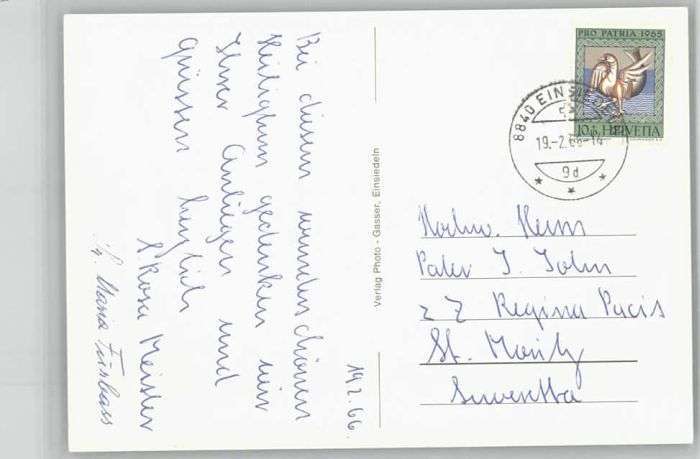 19.2.66.
Bei diesem wunderschönen
Heiligtum gedenken wir
Ihrer Anliegen und
grüssen herzlich
Rosa Meister
Maria
Verlag Photo - Gasser, Einsiedeln
PRO PATRIA 1965
10+ HELVETIA
8840 EINSIEDELN
19.-2.66-14
9d
Hochw. Herrn
Pater J. John
z Z Regina Pacis
St. Moritz
Suvretta